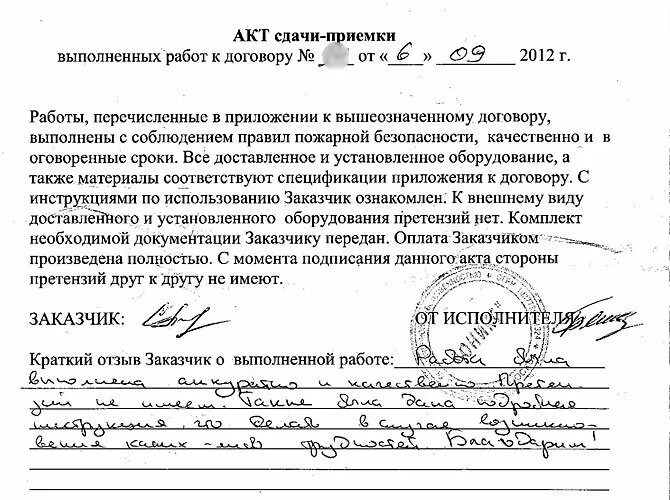 АКТ сдачи-приемки
выполненных работ к договору № от «6» 09 2012 г.
Работы, перечисленные в приложении к вышеозначенному договору,
выполнены с соблюдением правил пожарной безопасности, качественно и в
оговоренные сроки. Все доставленное и установленное оборудование, а
также материалы соответствуют спецификации приложения к договору. С
инструкциями по использованию Заказчик ознакомлен. К внешнему виду
доставленного и установленного оборудования претензий нет. Комплект
необходимой документации Заказчику передан. Оплата Заказчиком
произведена полностью. С момента подписания данного акта стороны
претензий друг к другу не имеют.
ЗАКАЗЧИК: ОТ ИСПОЛНИТЕЛЯ
Краткий отзыв Заказчик о выполненной работе: Работа была
выполнена аккуратно и качественно. Претен
зий не имеем. Также была дана подробная
инструкция, что делать в случае возникно-
вения каких-либо трудностей. Благодарим!